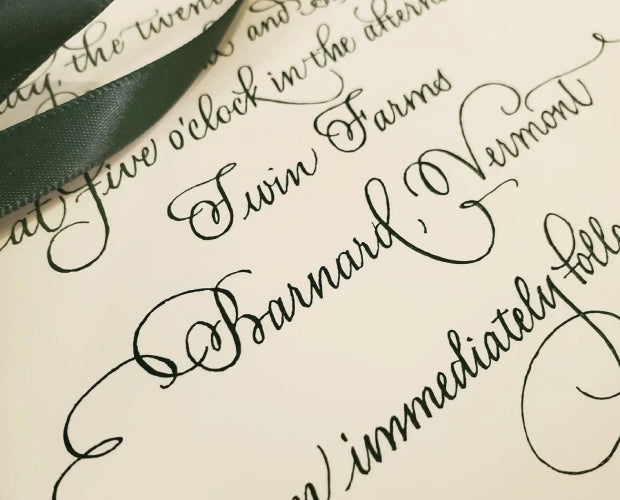 the twent
and
at five o'clock in the aftern
Twin Farms
Barnard, Vermont
immediately follo